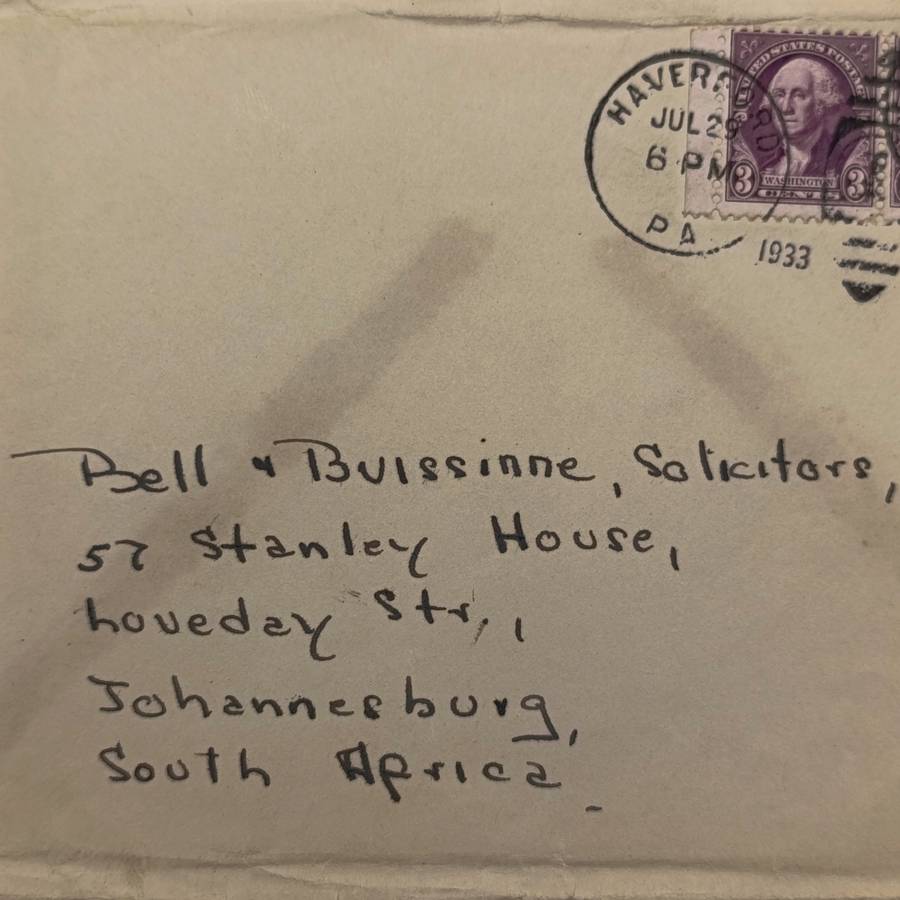 HAVERFORD
JUL 29
6 PM
PA.
1933
UNITED STATES POSTAGE
3 WASHINGTON 3
Bell & Buissinne, Solicitors,
57 Stanley House,
Loveday Str.,
Johannesburg,
South Africa